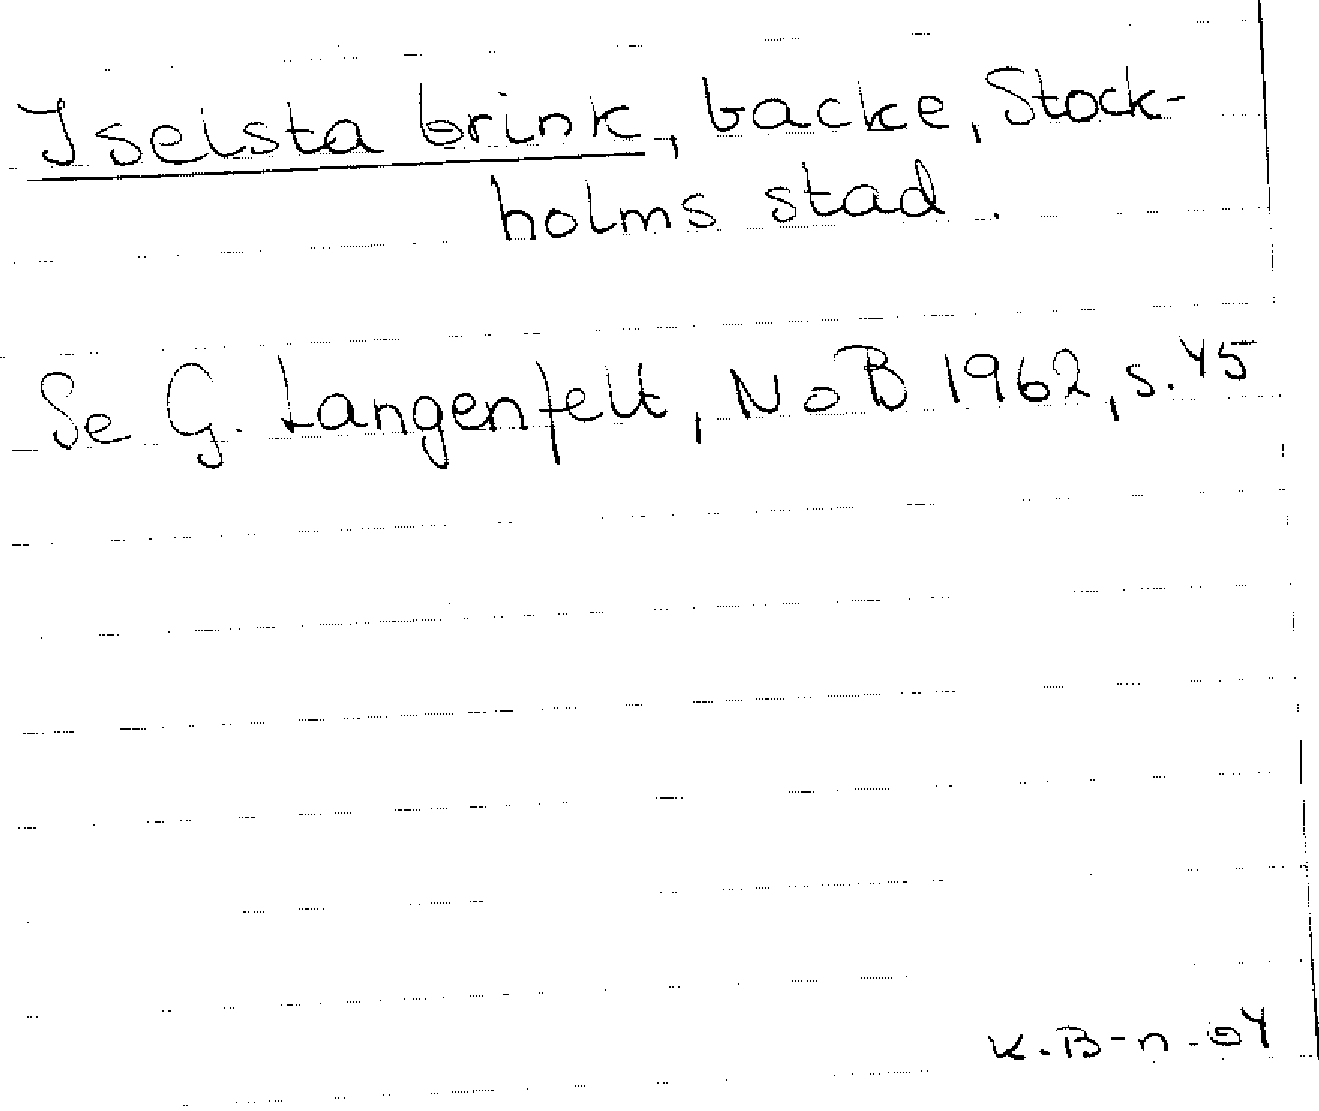 Iselsta brink, backe, Stock-
holms stad.
Se G. Langenfelt, NoB 1962, s. 45
K.B-n. 04